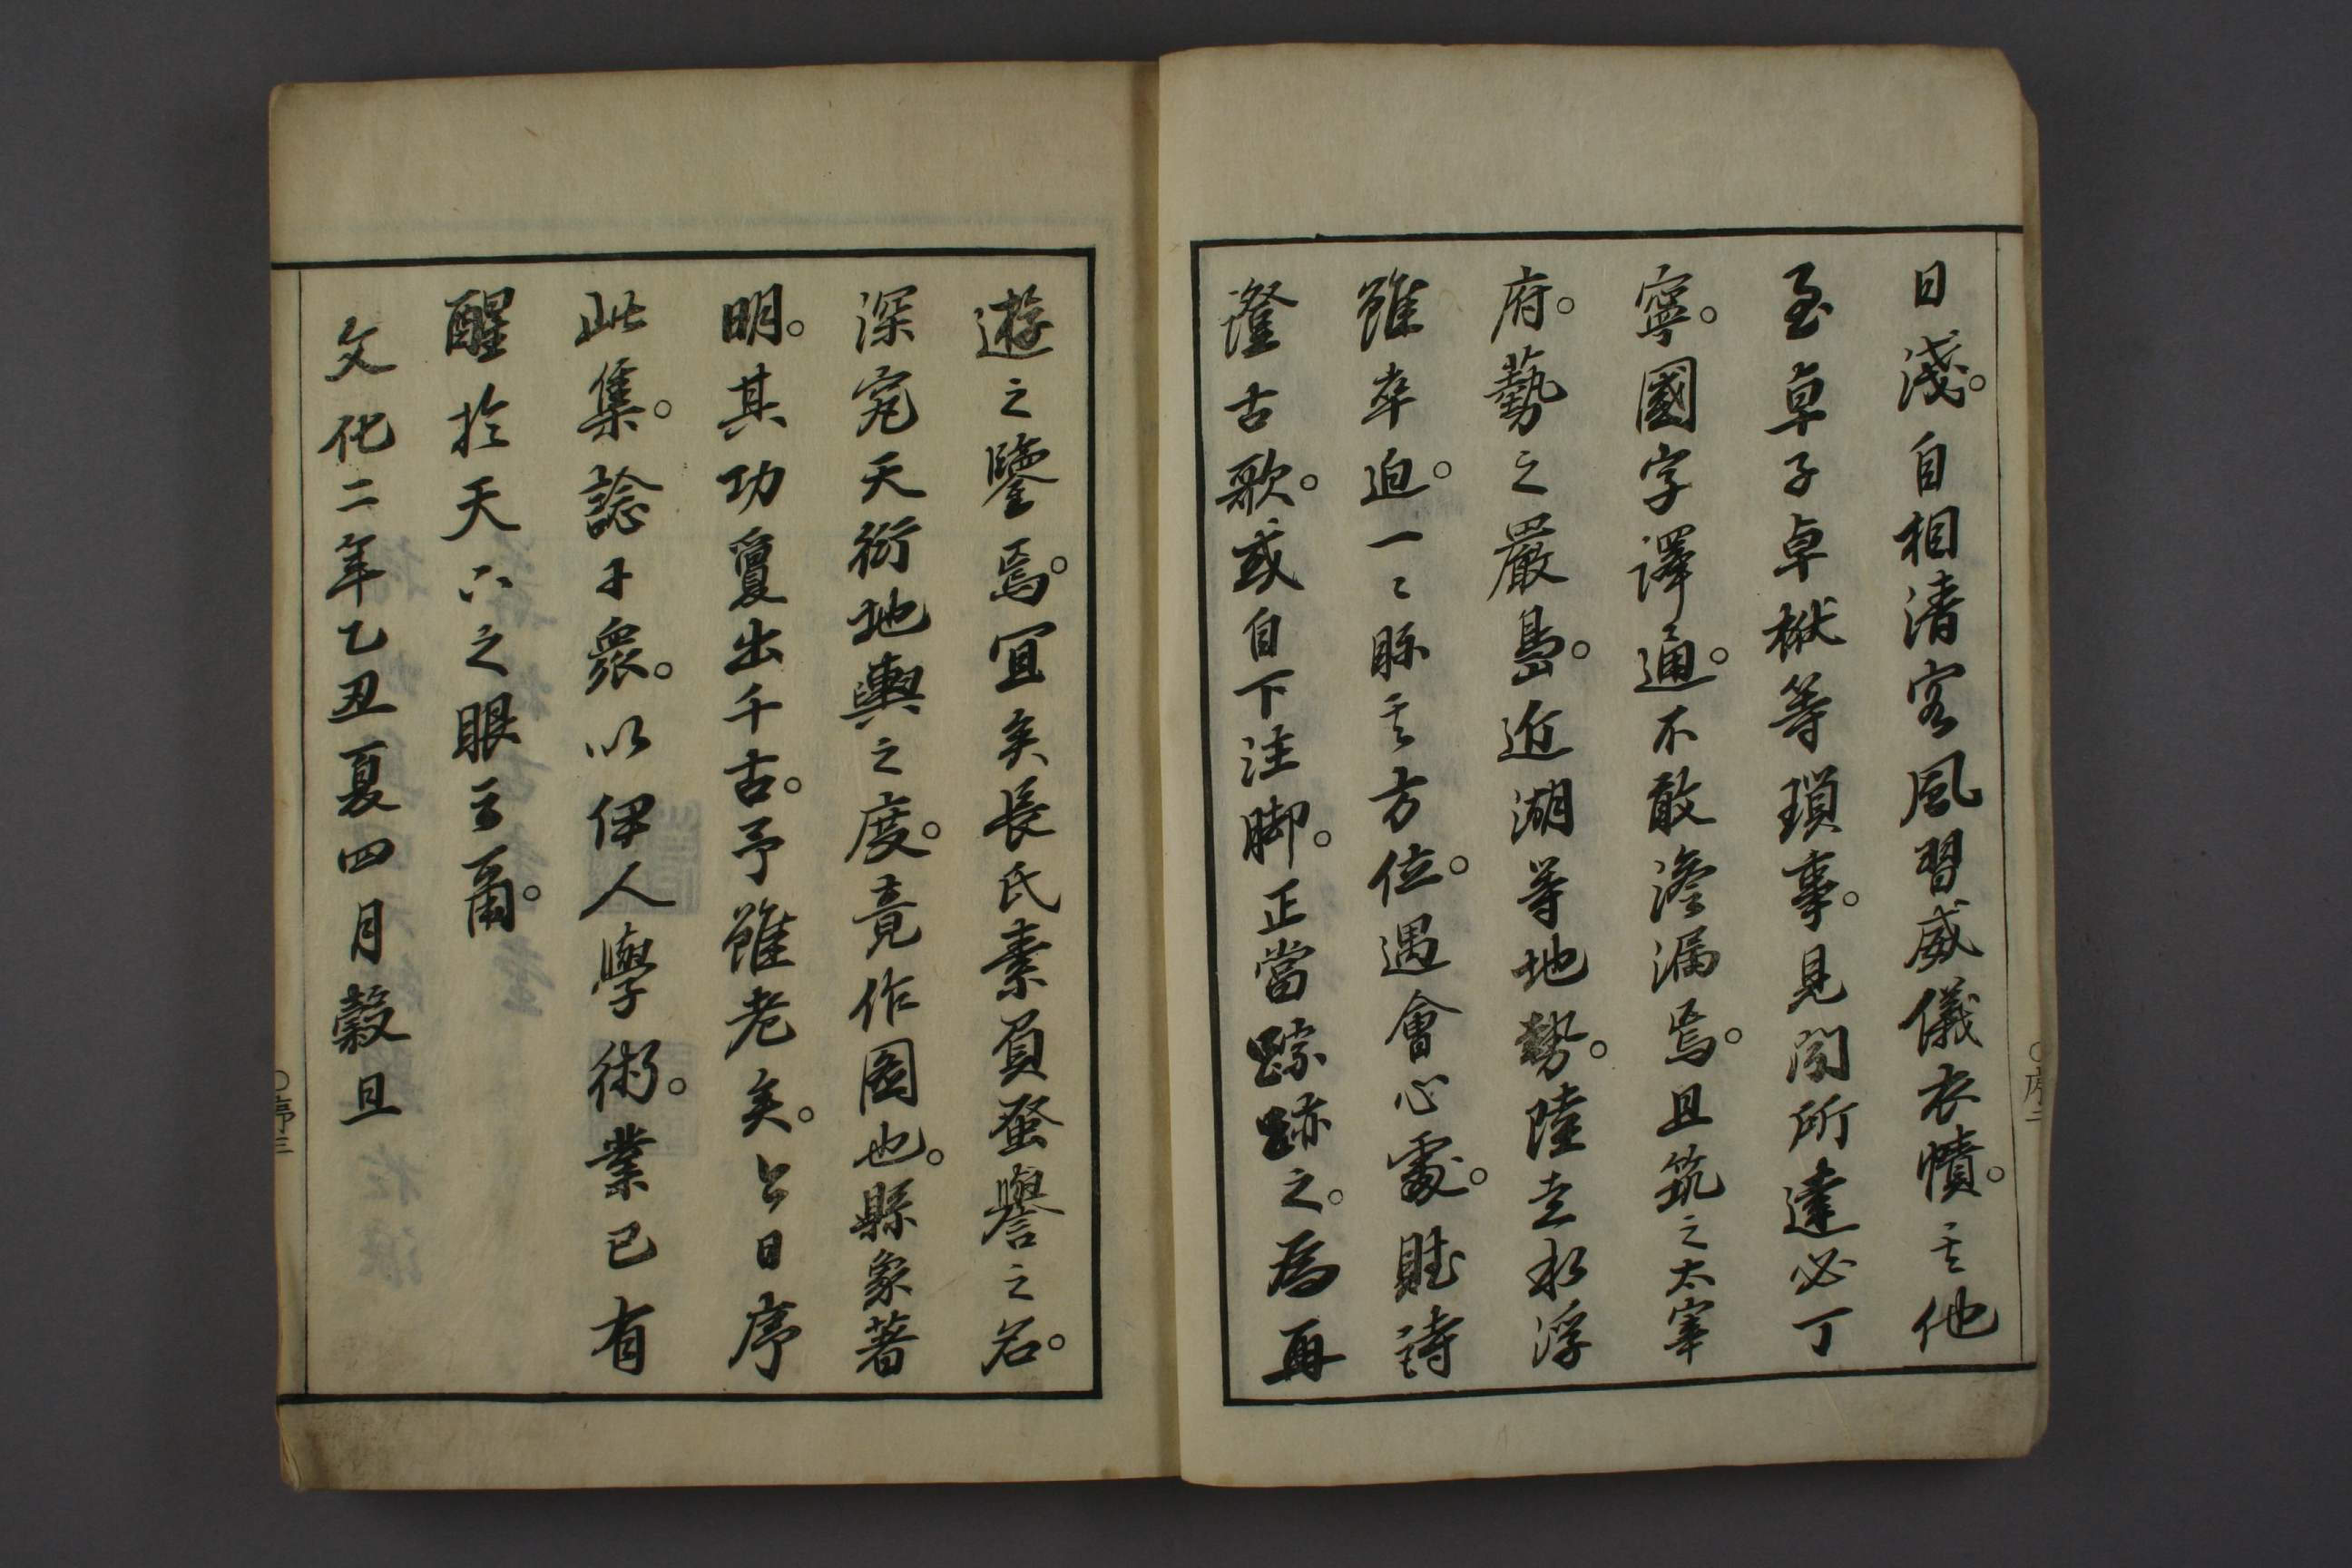 日淺。自相清客風習威儀衣幘。其他
至卓子卓袱等瑣事。見聞所達必丁
寧。國字譯通。不敢滲漏焉。且筑之太宰
府。藝之嚴島。近湖等地勢。陸走水浮
雖卒迫。一々縣其方位。遇會心處。賦詩
證古歌。或自下注脚。正當蹤跡之。為再
遊之鑒焉。宜矣長氏素負蜚譽之名。
深究天衍地輿之度。竟作圖也。縣象著
明。其功敻出千古。予雖老矣。今日序
此集。諗于衆。以伊人學術。業已有
醒於天下之眼云爾。
文化二年乙丑夏四月穀旦
○序二
○序三